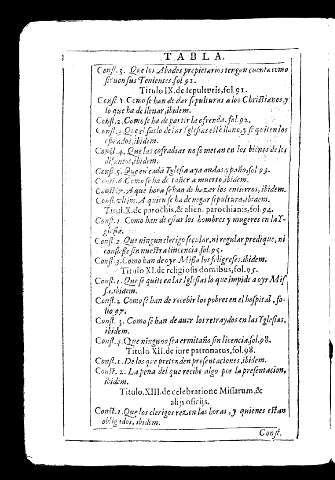 TABLA.
Const. 3. Que los Abades propietarios tengan cuenta como
siruen sus Tenientes. fol. 91.
Titulo IX. de sepulturis, fol. 91.
Const. 1. Como se han de dar sepulturas a los Christianos, y
lo que ha de lleuar, ibidem.
Const. 2. Como se ha de partir la ofrenda, fol. 92.
Const. 3. Que el suelo de las Iglesias esté llano, y se quiten los
estrados, ibidem.
Const. 4. Que las cofradias no se metan en los bienes de los
difuntos, ibidem.
Const. 5. Que en cada Iglesia aya andas, y paño, fol. 93.
Const. 6. Como se ha de tañer a muerto, ibidem.
Const. 7. A que hora se han de hazer los entierros, ibidem.
Const. vltim. A quien se ha de negar sepultura, ibidem.
Titul. X. de parochis, & alien. parochianis, fol. 94.
Const. 1. Como han de estar los hombres y mugeres en la Y-
glesia.
Const. 2. Que ningun clerigo secular, ni regular predique, ni
confiesse sin nuestra licencia. fol. 95.
Const. 3. Como han de oyr Missa los feligreses. ibidem.
Titulo XI. de religiosis domibus, fol. 95.
Const. 1. Que se quite en las Iglesias lo que impide a oyr Mis-
sa. ibidem.
Const. 2 Como se han de recebir los pobres en el hospital, fo-
lio 97.
Const. 3. Como se han de auer los retraydos en las Yglesias,
ibidem.
Const. 4. Que ninguno sea ermitaño sin licencia. fol. 98.
Titulo XII. de iure patronatus, fol. 98.
Const. 1. De los que pretenden presentaciones, ibidem.
Const. 2. La pena del que recibe algo por la presentacion,
ibidem.
Titulo. XIII. de celebratione Missarum, &
alijs officijs.
Const. 1. Que los clerigos rezen las horas, y quienes estan
obligados, ibidem.
Const.